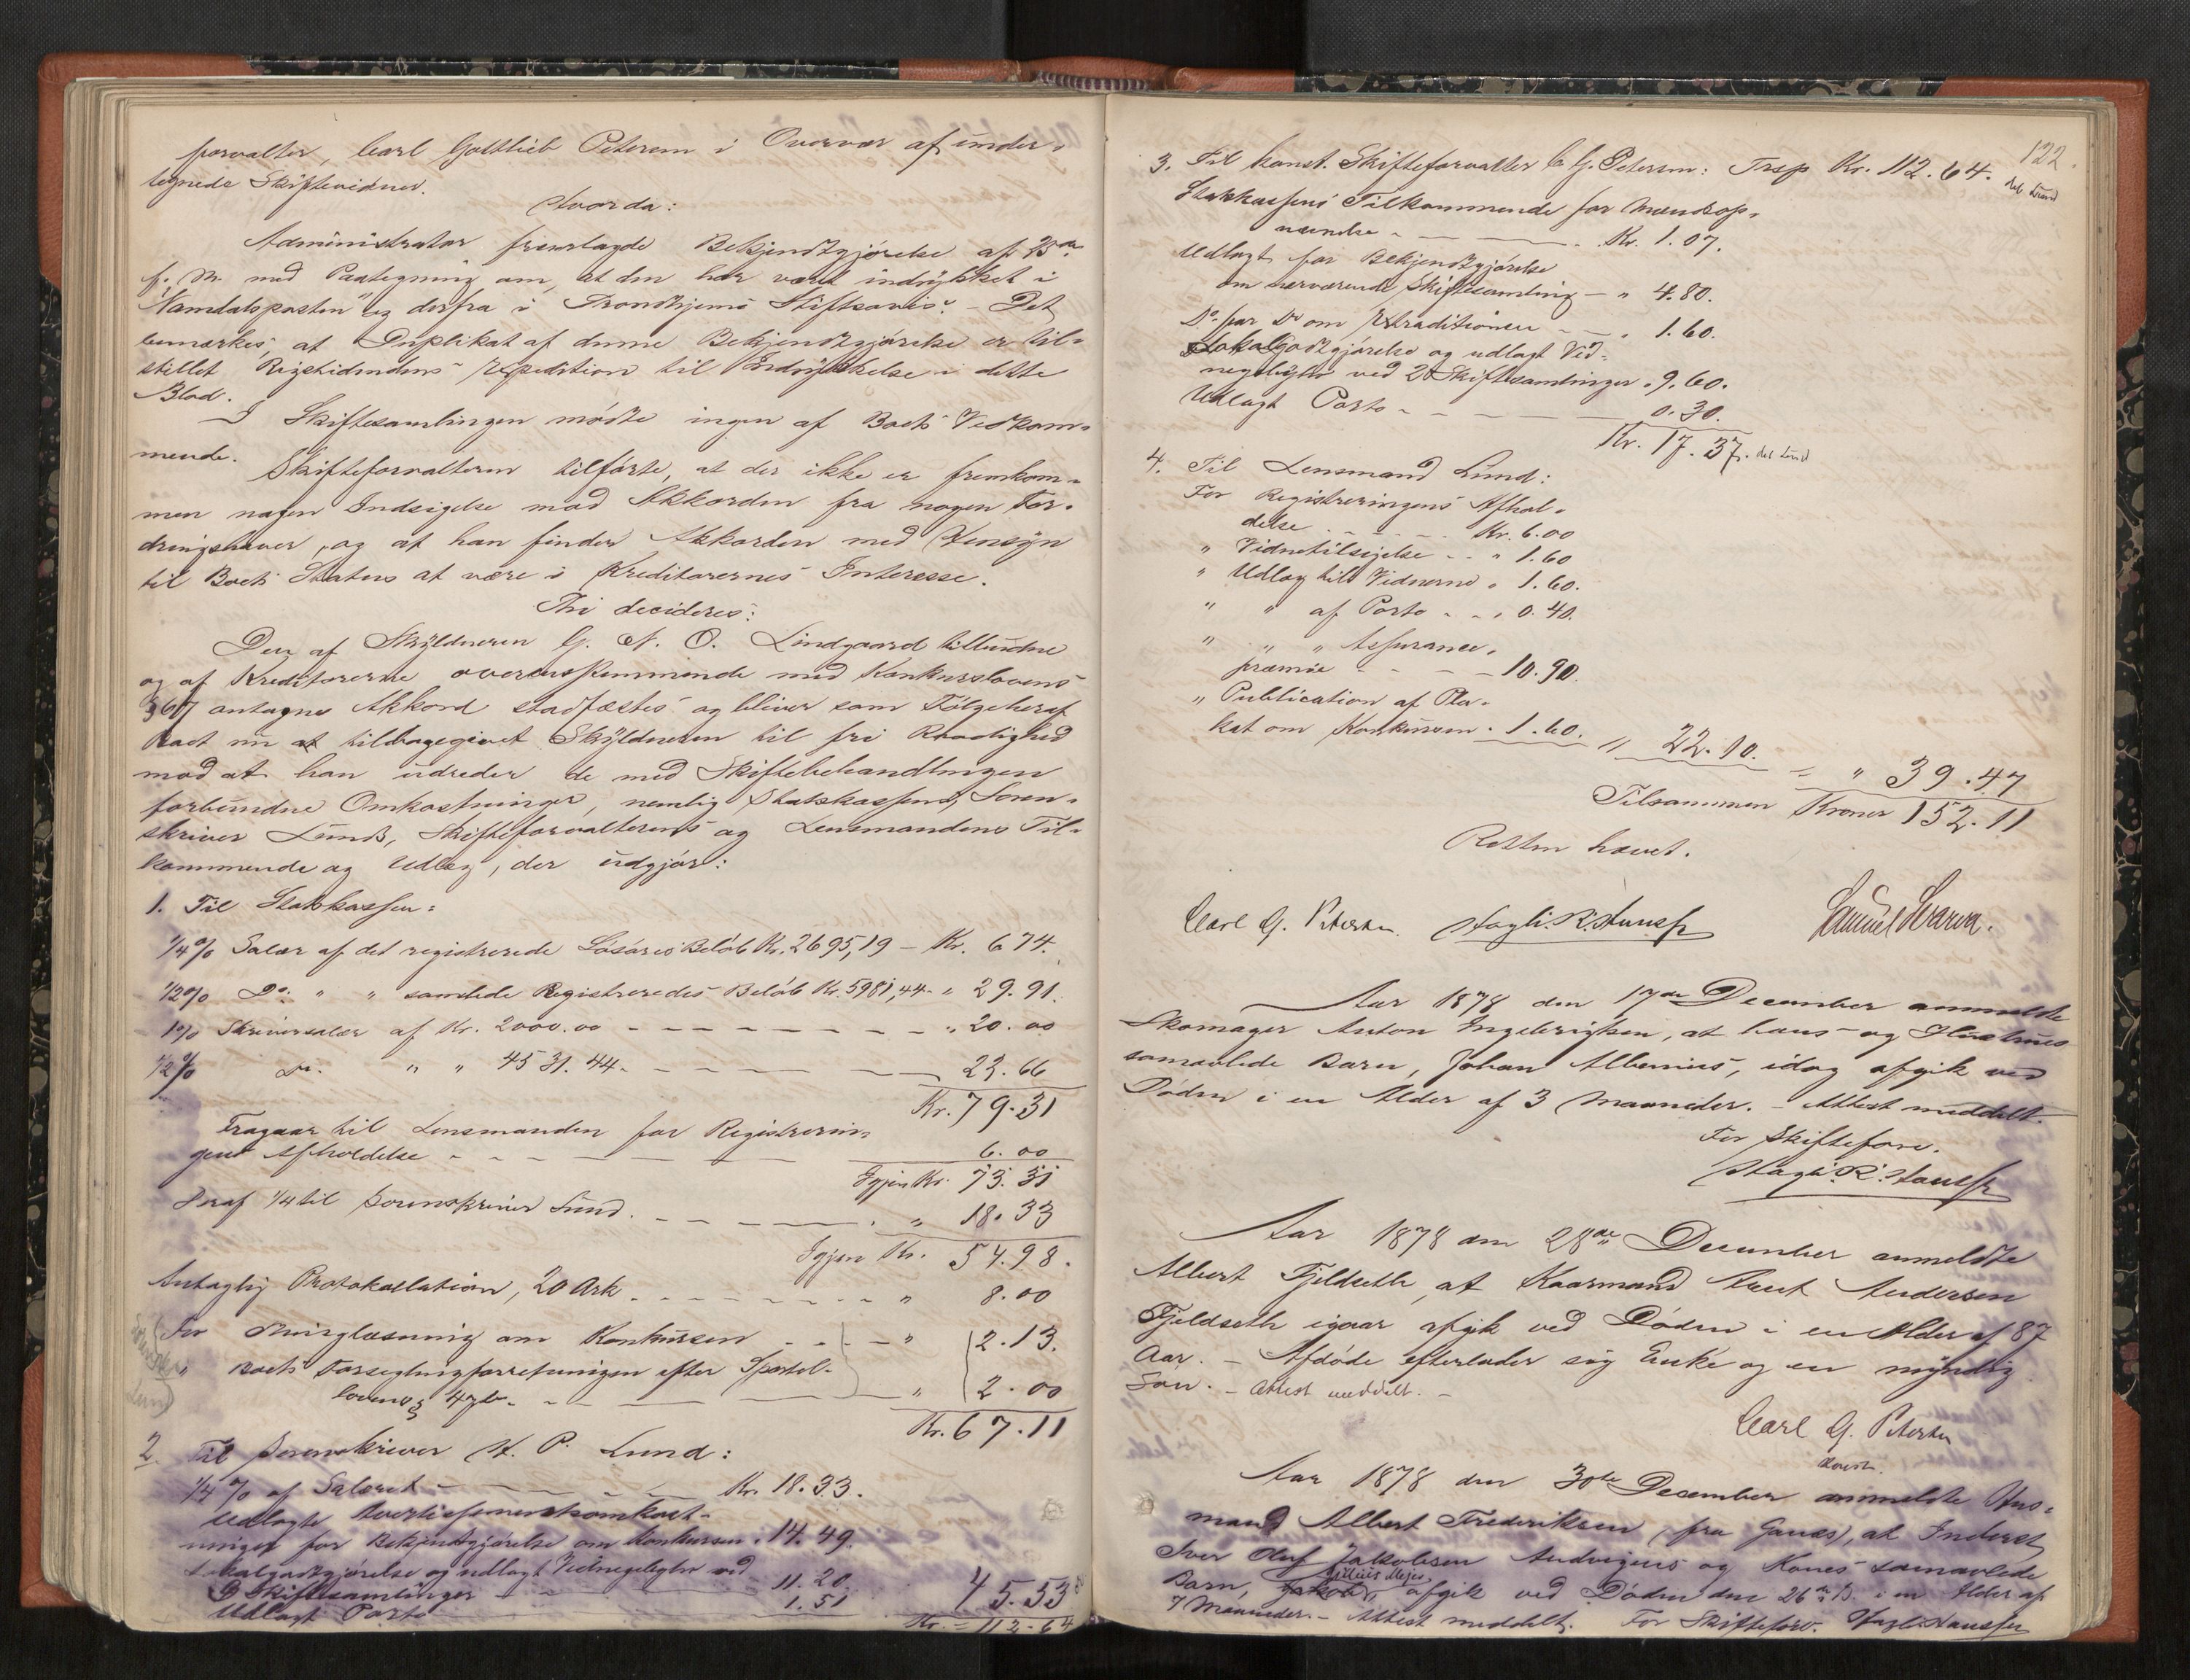 forvalter, Carl Gottlieb Petersen i Overvær af under-
tegnede Skiftevidner.
Hvorda:
Administrator fremlagde Bekjendtgjørelse af 23de
f. M. med Paategning om, at den har været indrykket i
"Namdalsposten" og derfra i Trondhjems Stiftsavis. - Det
bemærkes, at Duplikat af denne Bekjendtgjørelse er til-
stillet Rigstidendens Expedition til Indrykkelse i dette
Blad.
I Skiftesamlingen mødte ingen af Boets Vedkom-
mende.
Skifteforvalteren tilførte, at der ikke er fremkom-
men nogen Indsigelse mod Akkorden fra nogen For-
dringshaver, og at han finder Akkorden med Hensyn
til Boets Status at være i Kreditorernes Interesse.
Thi decideres:
Den af Skyldneren G. N. O. Lindgaard tilbudne
og af Kreditorerne overensstemmende med Konkurslovens
§ 67 antagne Akkord stadfæstes og bliver som Følge heraf
Boet nu at tilbagegivet Skyldneren til fri Raadighed
mod at han udreder de med Skiftebehandlingen
forbundne Omkostninger, nemlig Statskassens, Soren-
skriver Lunds, Skifteforvalterens og Lensmandens Til-
kommende og Udlæg, der udgjør:
1. Til Statskassen:
1/4 % Salær af det registrerede Løsøres Beløb Kr. 2695,19 - Kr. 6 74.
1/2 % Do. " " samtlede Registreredes Beløb Kr. 5981,44 - " 29.91.
1 % Skriversalær af Kr. 2000.00 - - - " 20.00
1/2 % Do. " " 4531.44. - - - 22.66
Kr. 79.31
Fragaar til Lensmanden for Registrerin-
gens Afholdelse - - - 6.00
Igjen Kr. 73.31
Heraf 1/4 til Sorenskriver Lund. - - - " 18.33
Igjen Kr. 54.98.
Antagelig Protokollation, 20 Ark - - - " 8.00
For Thinglæsning om Konkursen - - - " 2.13.
" Boets Forseglingsforretningen efter Sportel-
lovens § 47 - - - " 2.00
Kr. 67.11
2. Til Sorenskriver H. P. Lund:
1/4 % af Salæret - - - Kr. 18.33.
Udlagte Avertissementsomkost-
ninger for Bekjendtgjørelse om Konkursen . 14.49.
Lokalgodtgjørelse og udlagt Vidnegebyhr ved
Skiftesamlinger - - 11.20.
Udlagt Porto 1.51
45.53
Kr. = 112.64
122.
3. Til konst. Skifteforvalter C. G. Petersen: Trsp Kr. 112.64.
Statskassens Tilkommende for Mændsop-
nævnelse - - - Kr. 1.07.
Udlagt for Bekjendtgjørelse
om nærværende Skiftesamling - " 4.80.
Do. for Do om Extraditionen - - . 1.60.
Lokalgodtgjørelse og udlagt Vid-
negebyhr ved 2 Skiftesamlinger . 9.60.
Udlagt Porto - - - 0.30.
Kr. 17.37.
4. Til Lensmand Lund:
For Registreringens Afhol-
delse - - - Kr. 6.00
" Vidnetilsigelse - - " 1.60
" Udlæg til Vidnerne " 1.60.
" " af Porto - - " 0.40.
" " " Assurance-
præmie - - - 10.90.
" Publication af Pla-
kat om Konkursen . 1.60. " 22.10. - " 39.47
Tilsammen Kroner 152.11
Retten hævet.
Carl G. Petersen.
Aar 1878 den 17de December anmeldte
Skomager Anton Ingebrigtsen, at hans og Hustrues
samavlede Barn, Johan Albenius, idag afgik ved
Døden i en Alder af 3 Maaneder. - Attest meddelt.
For Skifteforv.
Aar 1878 den 28de December anmeldte
Albert Fjeldseth, at Kaarmand Arnt Andersen
Fjeldseth igaar afgik ved Døden i en Alder af 87
Aar. - Afdøde efterlader sig Enke og en myndig
Søn. - Attest meddelt. -
Carl G. Petersen
Konst.
Aar 1878 den 30te December anmeldte Hus-
mand Albert Frederiksen (fra Ganæs), at Inderst
Iver Oluf Jakobsen Andvigens og Kones samavlede
Barn, afgik ved Døden den 26de ds. i en Alder af
7 Maaneder. - Attest meddelt. For Skifteforv.